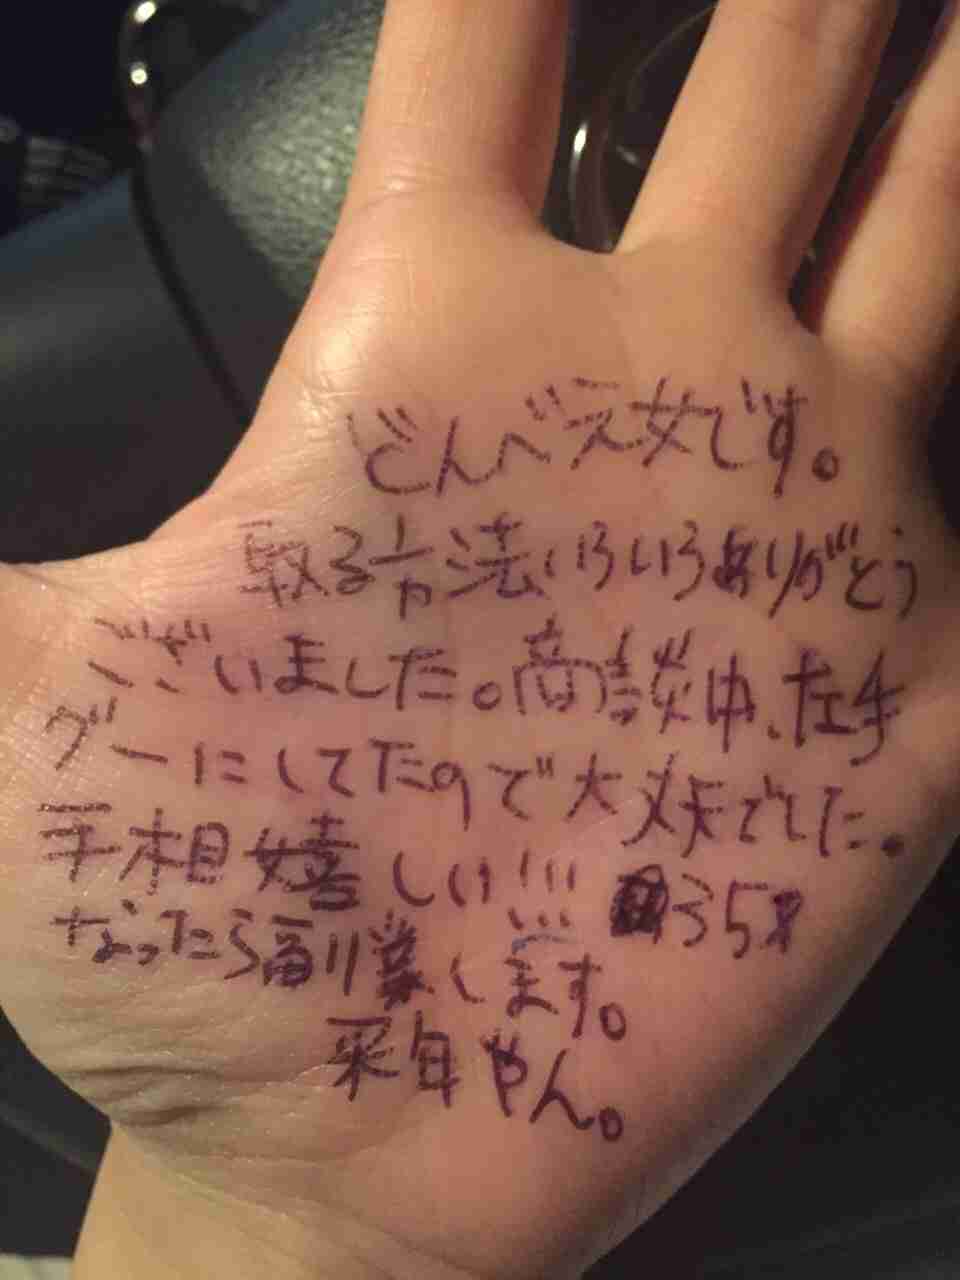 どんべえ女です。
取る方法いろいろありがとう
ございました。商談中、左手
グーにしてたので大丈夫でした。
手相嬉しい!!! 35才
なったら副業します。
来年やん。